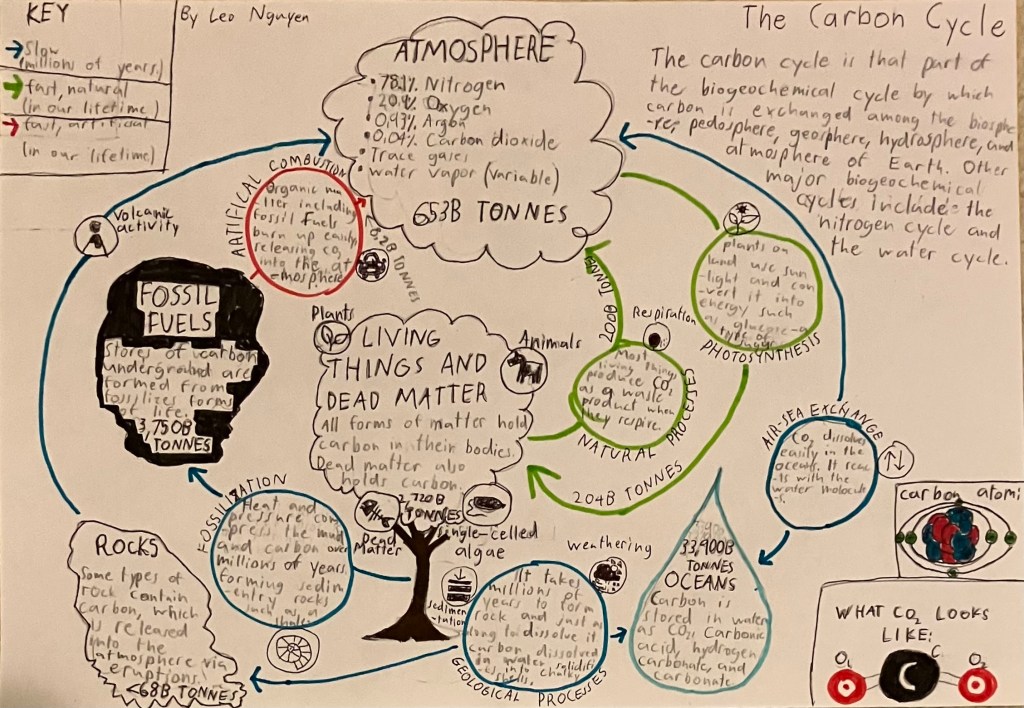 KEY
Slow
(millions of years.)
fast, natural
(in our lifetime)
fast, artificial
(in our lifetime)
By Leo Nguyen
The Carbon Cycle
The carbon cycle is that part of
the biogeochemical cycle by which
carbon is exchanged among the biosphe
-re, pedosphere, geosphere, hydrosphere, and
atmosphere of Earth. Other
major biogeochemical
cycles include: the
nitrogen cycle and
the water cycle.
ATMOSPHERE
• 78.1% Nitrogen
• Oxygen
• 0,93% Argon
• 0,04% Carbon dioxide
• Trace gases
• water vapor (variable)
653B TONNES
Volcanic
activity
ARTIFICAL COMBUSTION
Organic ma
tter including
fossil fuels
burn up easily
releasing CO2
into the at
-mosphere
TONNES
FOSSIL
FUELS
Stores of carbon
underground are
formed from
fossilizes forms
of life.
3,750B
TONNES
Plants
Animals
LIVING
THINGS AND
DEAD MATTER
All forms of matter hold
carbon in their bodies.
Dead matter also
holds carbon.
TONNES
Dead
Matter
single-celled
algae
200B TONNES
Respiration
Most things
living things
produce CO2
as a waste
product when
they respire.
NATURAL PROCESSES
plants on
land use sun
-light and con
-vert it into
energy such
as glucose-a
type of
sugar
PHOTOSYNTHESIS
204B TONNES
AIR-SEA EXCHANGE
CO2 dissolves
easily in the
oceans. It reac
-ts with the
water molecule
-s.
33,900B
TONNES
OCEANS
Carbon is
stored in water
as CO2, Carbonic
acid, hydrogen
carbonate, and
carbonate.
FOSSILIZATION
Heat and
pressure com
-press the mud
and carbon over
millions of years,
forming sedim
-entry rocks
such as a
shale.
ROCKS
Some types of
rock contain
carbon, which
is released
into the
atmosphere via
eruptions.
<68B TONNES
sedimen
-tation
weathering
It takes
millions of
years to form
rock and just as
long to dissolve it
carbon dissolved
in water solidifi
-es into chalky
shells.
GEOLOGICAL PROCESSES
carbon atom:
WHAT CO2 LOOKS
LIKE:
O1
C
C
O2